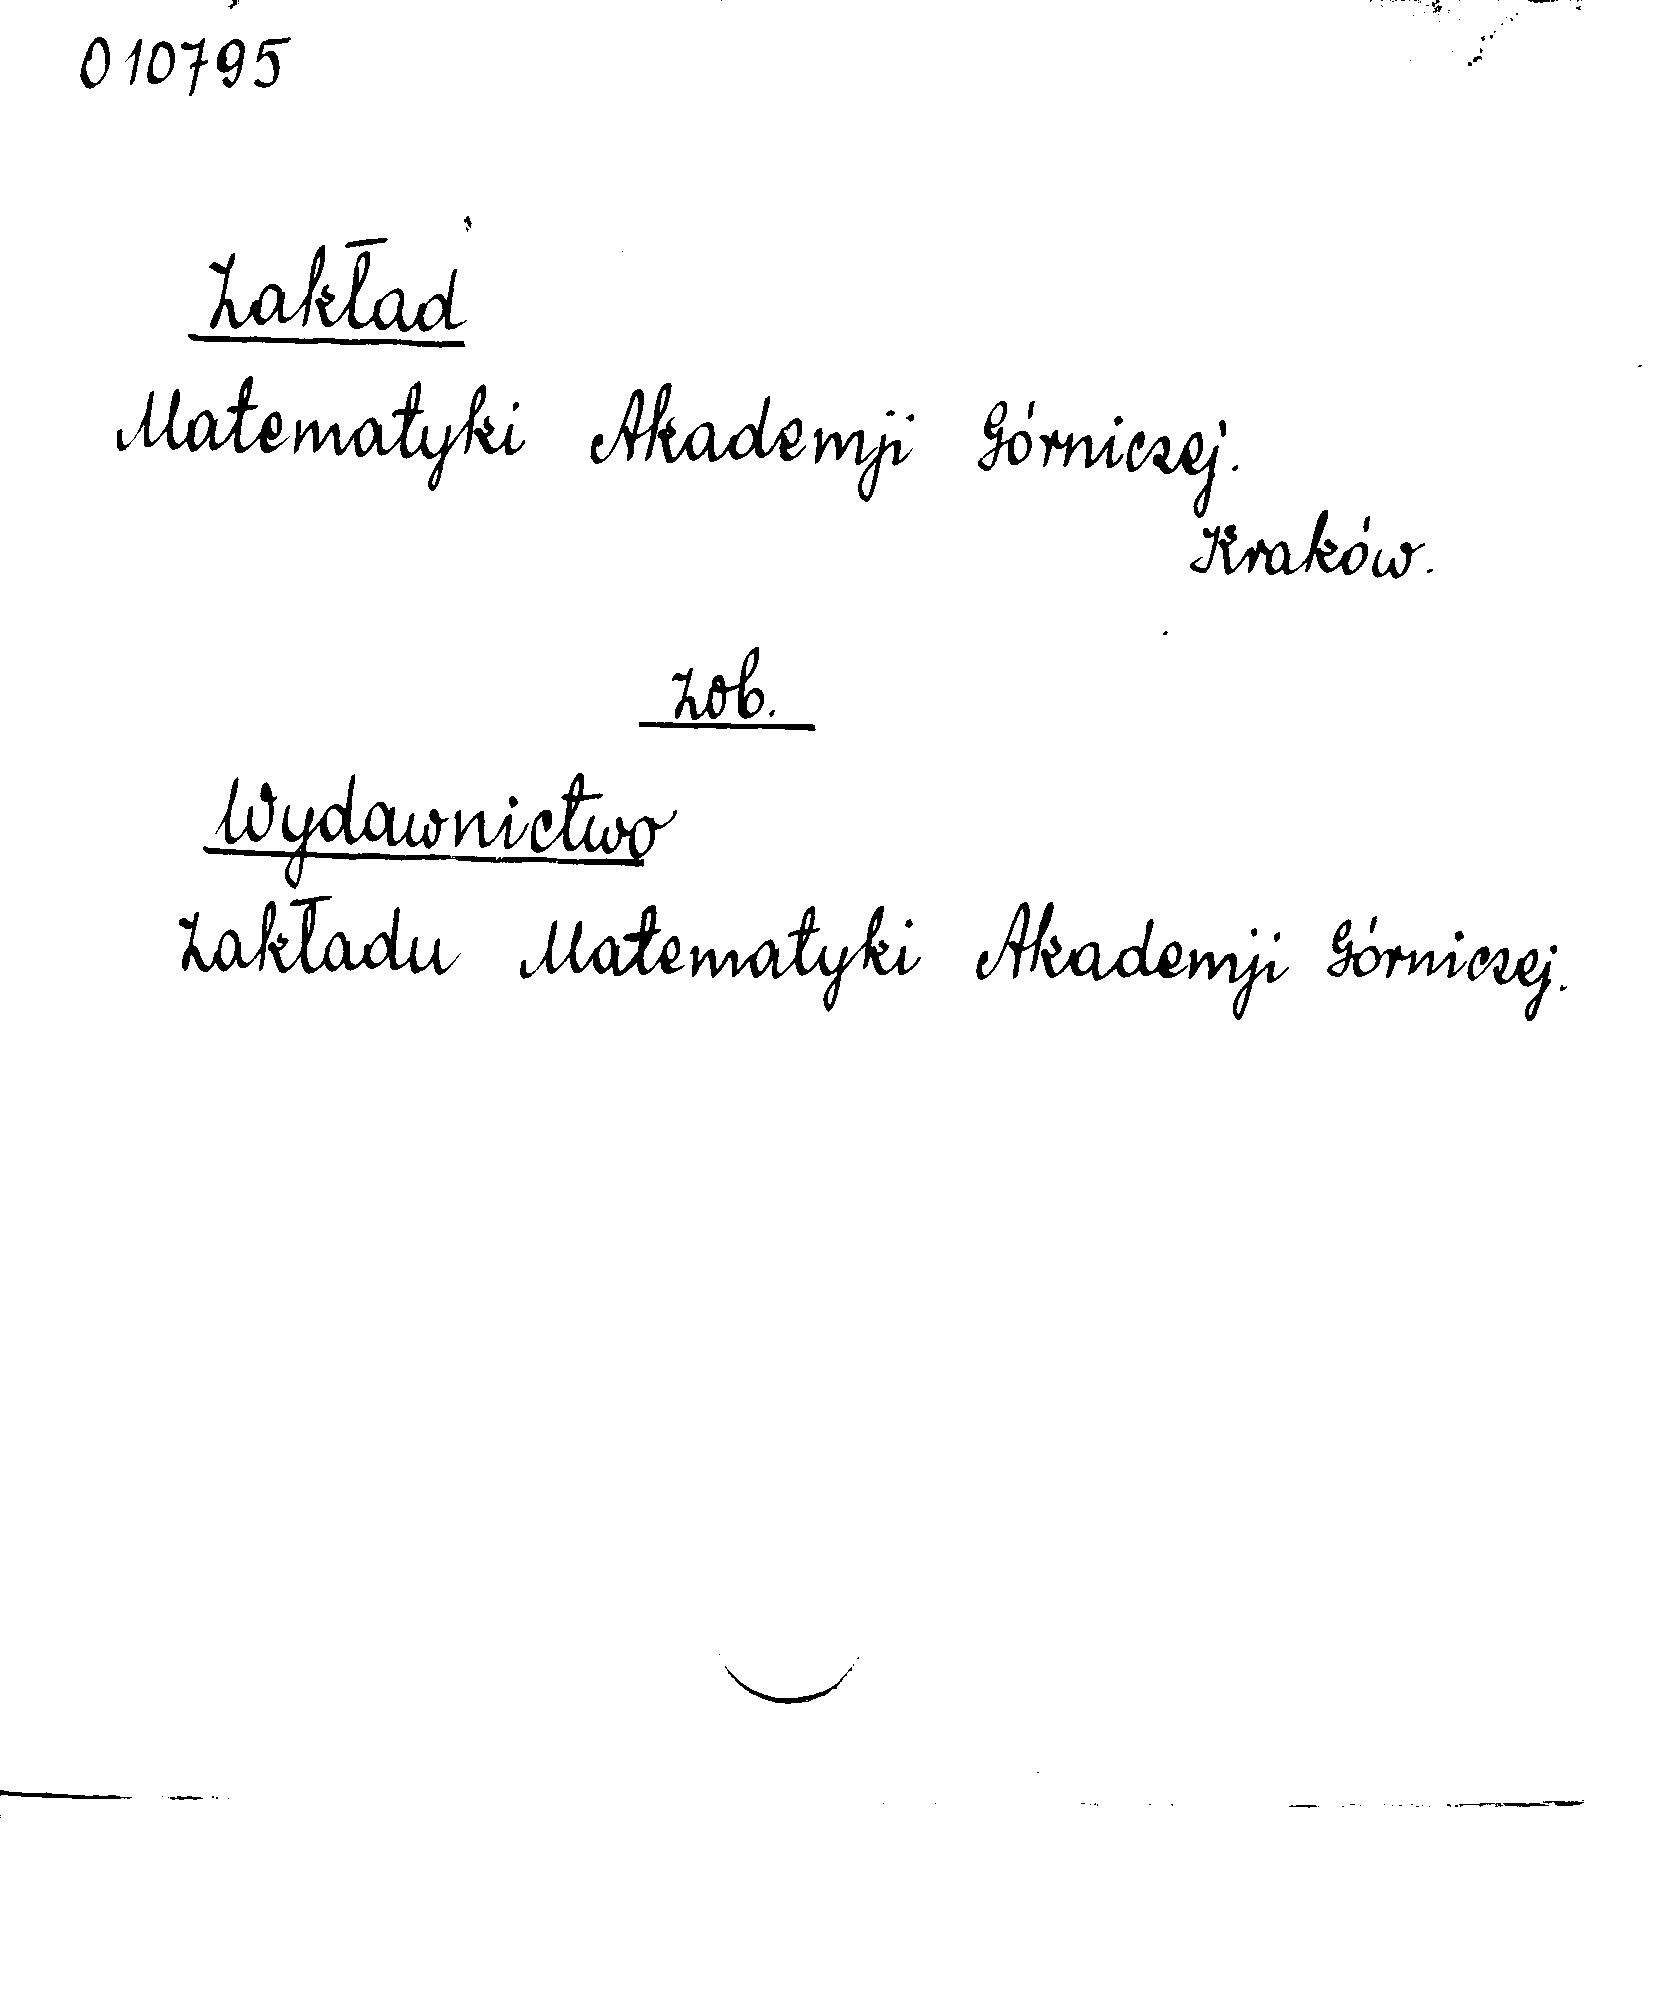 010795
Zakład
Matematyki Akademji Górniczej.
Kraków.
zob.
Wydawnictwo
Zakładu Matematyki Akademji Górniczej.